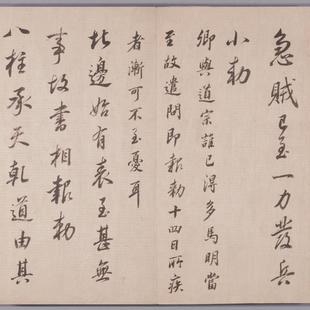 急賊已至一力發兵
小勅
卿與道宗誰已得多馬明當
至故遣問即報勅十四日所疾
者漸可不至憂耳
比邊始有表至甚無
事故書相報勅
八柱承天乾道由其